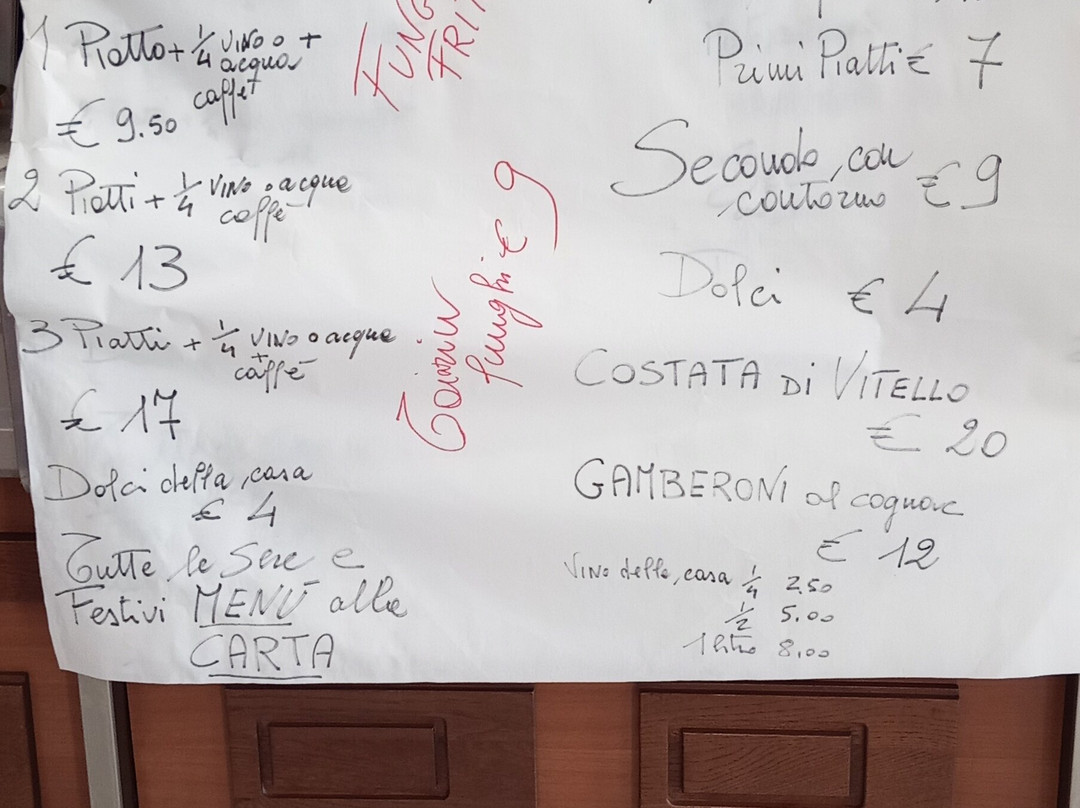 1 Piatto + 1/4 VINO o +
acqua
caffè
€ 9.50
2 Piatti + 1/4 VINO o acqua
caffè
€ 13
3 Piatti + 1/4 VINO o acqua
+
caffè
€ 17
Dolci della casa
€ 4
Tutte le Sere e
Festivi MENÙ alla
CARTA
FUNG
FRI
funghi € 9
Primi Piatti € 7
Secondo con
contorno € 9
Dolci € 4
COSTATA Di VITELLO
€ 20
GAMBERONI al cognac
€ 12
Vino della casa 1/4 2,50
1/2 5.00
1 litro 8,00